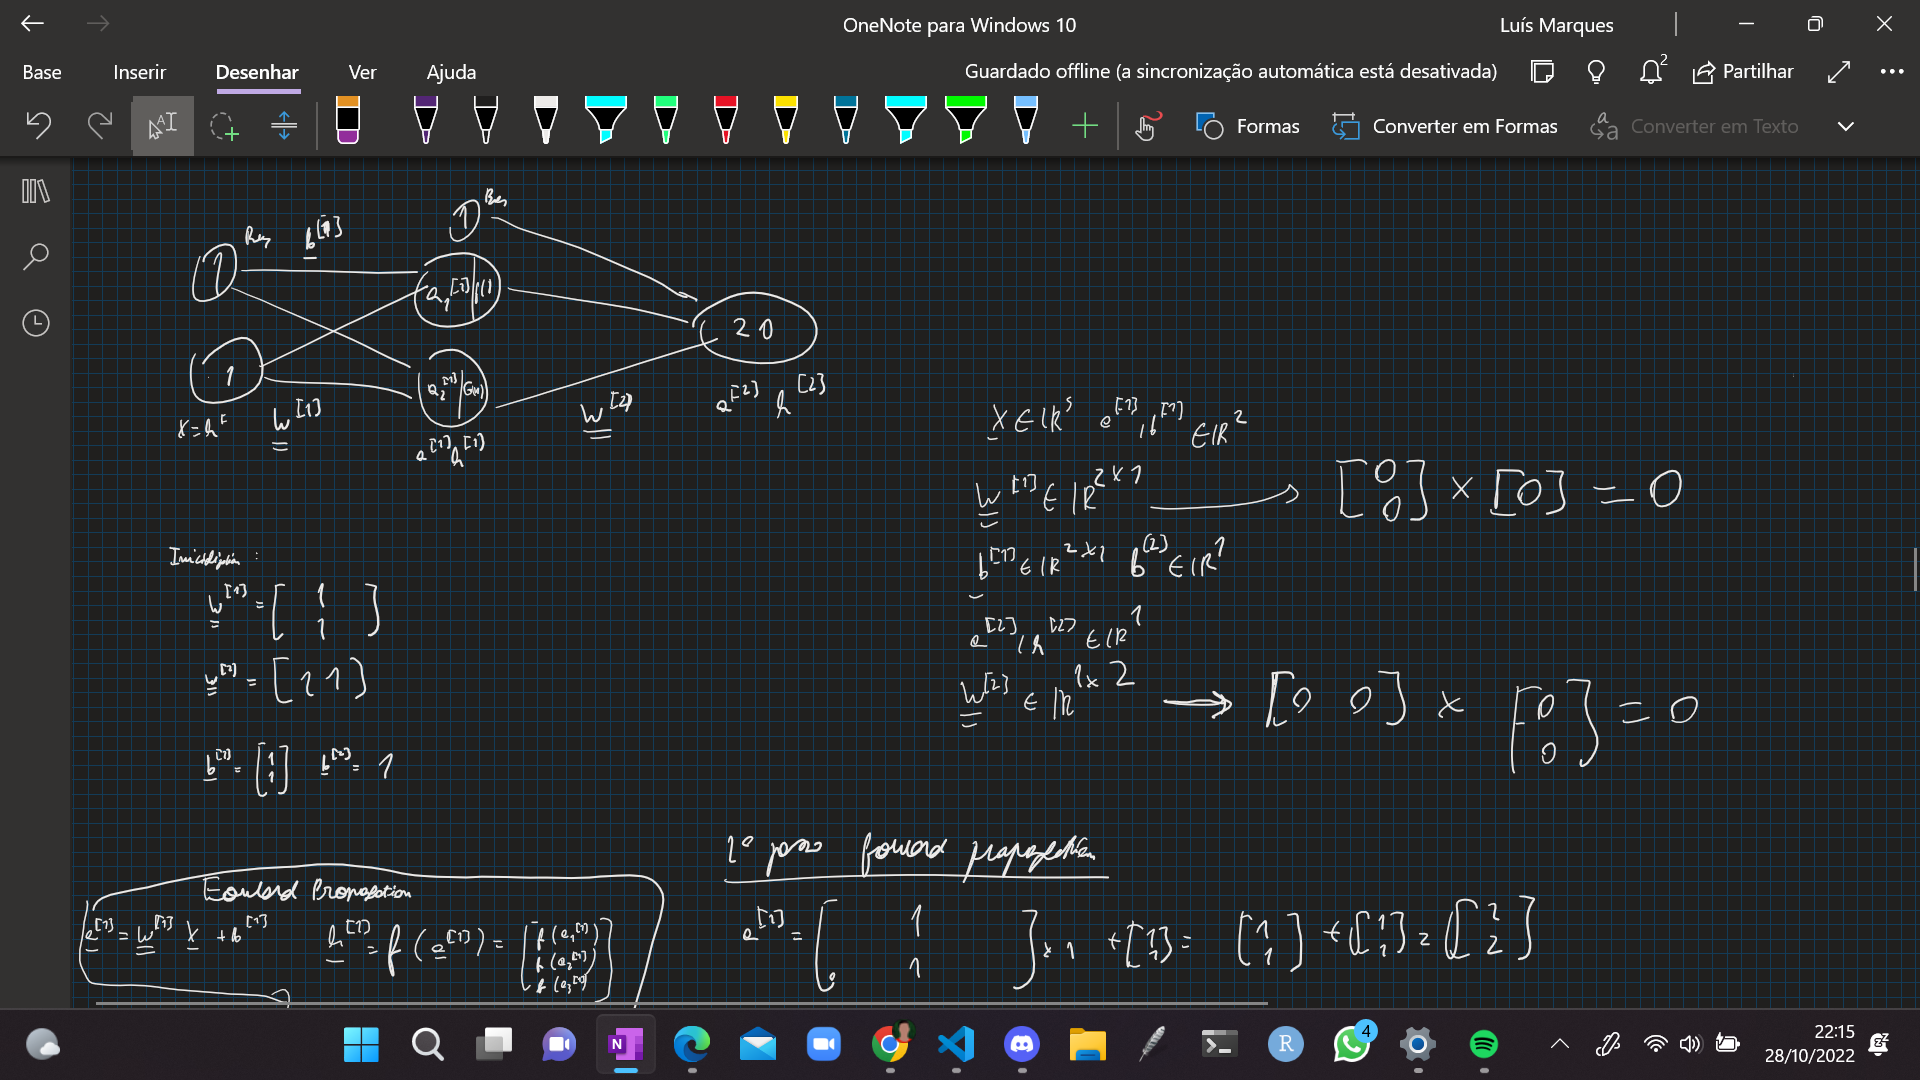 OneNote para Windows 10
Luís Marques
Base Inserir Desenhar Ver Ajuda
Guardado offline (a sincronização automática está desativada)
2
Partilhar
Formas
Converter em Formas
Converter em Texto
1
1 b^[1]
a_1^[1]
1
a_2^[1]
2 0
w^[1]
w^[2]
a^[2] h^[2]
a^[1] h^[1]
a^[1], b^[1] ∈ IR^2
w^[1] ∈ IR^2×1 → [0 0] × [0] = 0
b^[1] ∈ IR^2×1 b^[2] ∈ IR^1
a^[2], h^[2] ∈ IR^1
w^[2] ∈ IR^1×2 → [0 0] × [0 0] = 0
w^[1] = [1 1]
w^[2] = [1 1]
b^[1] = [1 1] b^[2] = 1
1º passo forward propagation
Forward Propagation
a^[1] = w^[1] x + b^[1] h^[1] = f(a^[1]) = [f(a_1^[1]) f(a_2^[1]) f(a_3^[1])]
a^[1] = [1 1] × 1 + [1 1] = [1 1] + [1 1] = [2 2]
4
22:15
28/10/2022